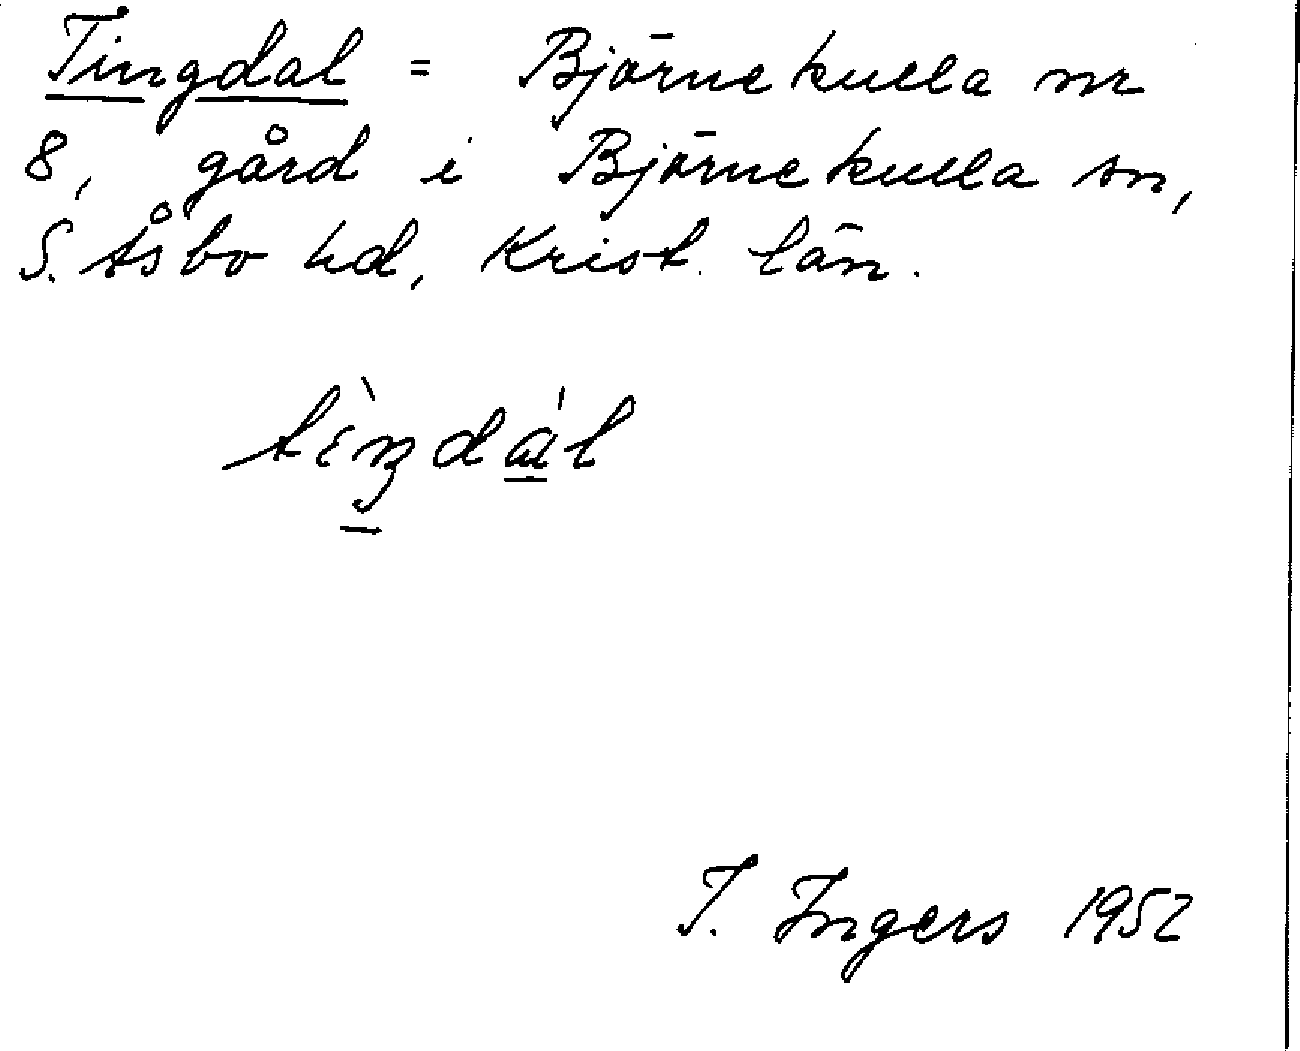 Tingdal = Björnekulla nr
8, gård i Björnekulla sn,
S. Åsbo hd, Krist. län.
I. Ingers 1952